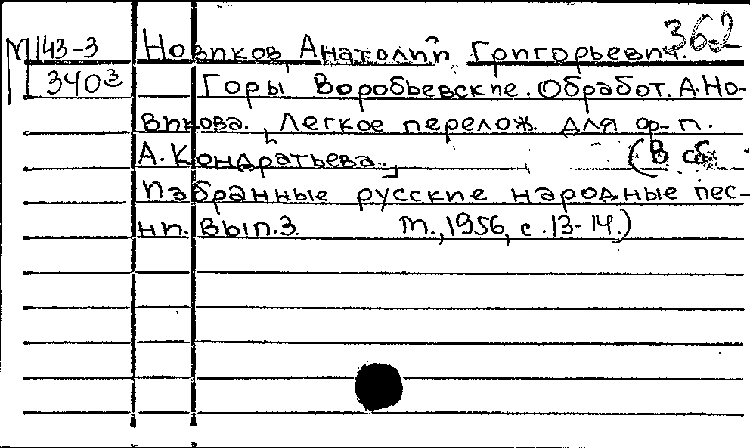 362
М 143-3 Новиков, Анатолий Григорьевич.
340³ Горы Воробьевские. Обработ. А. Но-
викова. [Легкое перелож. для ф-п.
А. Кондратьева.] (В сб.
Избранные русские народные пес-
ни. Вып. 3. М., 1956, с. 13-14.)